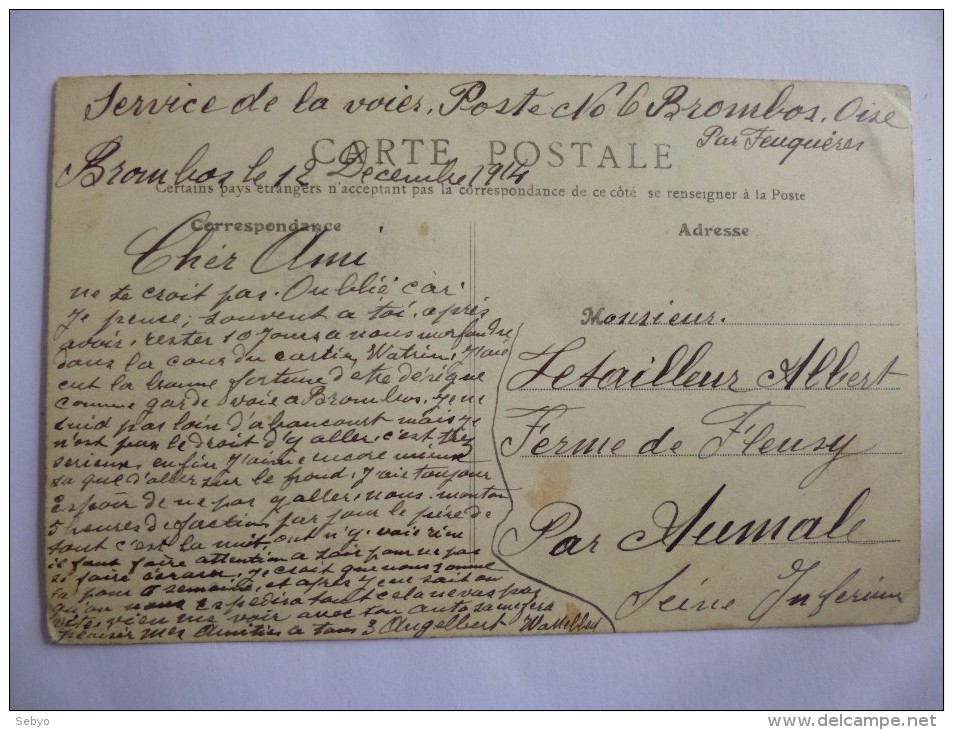 Service de la voies, Poste No 6 Brombos. Oise
Par Feuquières
CARTE POSTALE
Brombos le 12 Decembre 1914
Certains pays étrangers n'acceptant pas la correspondance de ce côté se renseigner à la Poste
Correspondance
Chér Ami
ne te croit pas. Oublié càr
je pense, souvent a toi, après
avoir, rester 10 Jours a nous morfondre
dans la cour du cartier Watrin, J'aie
eut la bonne fortune d'etre désigné
comme garde voie a Brombos. Je ne
suid pas loin d'abancourt mais je
n'est pas le droit d'y aller, c'est très
serieux, enfin J'aime encore mieux
sa que d'aller sur le frond, J'aie toujour
Espoir de ne pas y aller, nous monton
5 heures de faction par jour le pire de
tout c'est la nuit, ont n'y voie rien
il faut faire attention a soir pour ne pas
si faire écraser, Je croit que nous somme
la pour 6 semaine, et après Je ne sait ou
qu'on nous Expédira tout cela ne vas pas
vite, vien me voir avec ton auto sa me fera
plaisir mes Amitiés a tous 3 Angelbert
Adresse
Monsieur.
Letailleur Albert
Ferme de Fleusy
Par Aumale
Seine Inferieure
Sebyo
www.delcampe.net